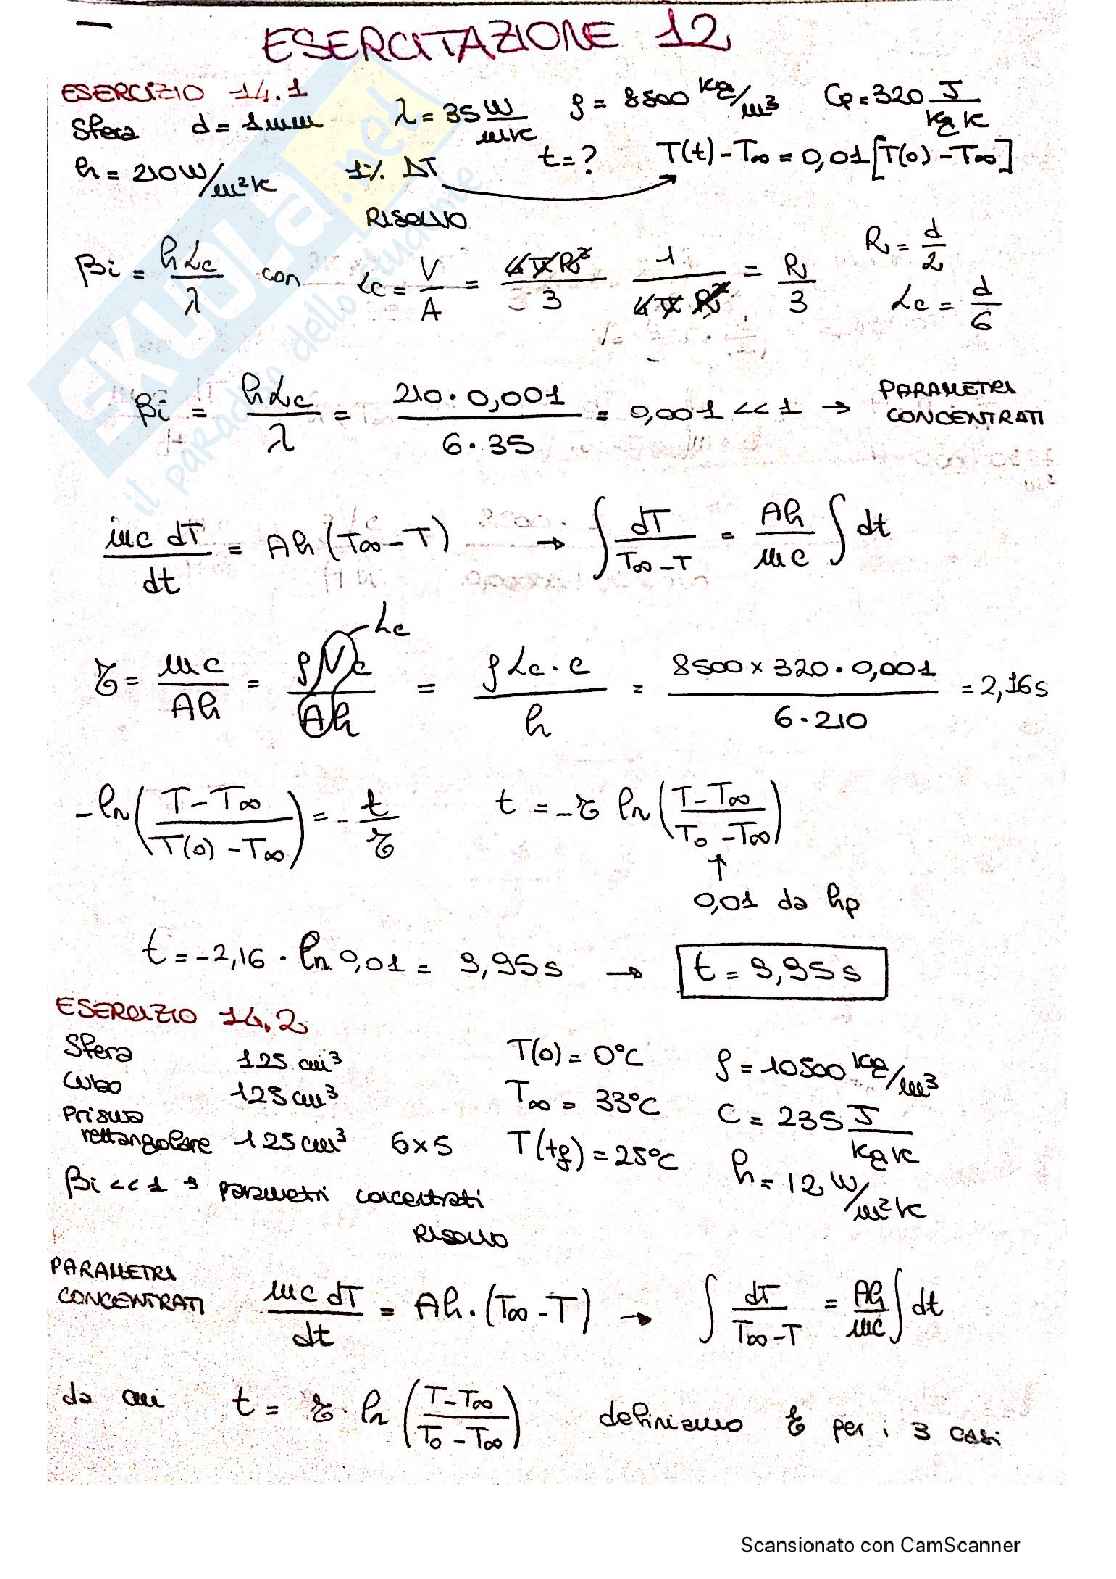 ESERCITAZIONE 12
ESERCIZIO 14.1
Sfera d = 1mm λ = 35 W/mK ρ = 8500 kg/m³ Cp = 320 J/kg K
h = 210 W/m²K 1% ΔT t = ? T(t) - T∞ = 0,01 [T(0) - T∞]
RISOLVO
Bi = hLc/λ con Lc = V/A = 4πR³/3 · 1/4πR² = R/3 R = d/2 Lc = d/6
Bi = hLc/λ = 210 · 0,001 / 6 · 35 = 0,001 << 1 → PARAMETRI CONCENTRATI
mc dT/dt = Ah (T∞ - T) → ∫ dT/T∞ - T = Ah/mc ∫ dt
Lc
τ = mc/Ah = ρVc/Ah = ρLc · c/h = 8500 x 320 · 0,001 / 6 · 210 = 2,16 s
-ln (T - T∞ / T(0) - T∞) = - t/τ t = -τ ln (T - T∞ / T0 - T∞)
↑
0,01 da hp
t = -2,16 · ln 0,01 = 9,95 s → t = 9,95 s
ESERCIZIO 14.2
Sfera 125 cm³ T(0) = 0°C ρ = 10500 kg/m³
Cubo 125 cm³ T∞ = 33°C C = 235 J/kg K
Prisma rettangolare 125 cm³ 6x5 T(tf) = 25°C h = 12 W/m²K
Bi << 1 → parametri concentrati
RISOLVO
PARAMETRI CONCENTRATI mc dT/dt = Ah · (T∞ - T) → ∫ dT/T∞ - T = Ah/mc ∫ dt
da cui t = τ · ln (T - T∞ / T0 - T∞) definiamo τ per i 3 casi
SKUOLA.net
il paradiso dello studente
Scansionato con CamScanner